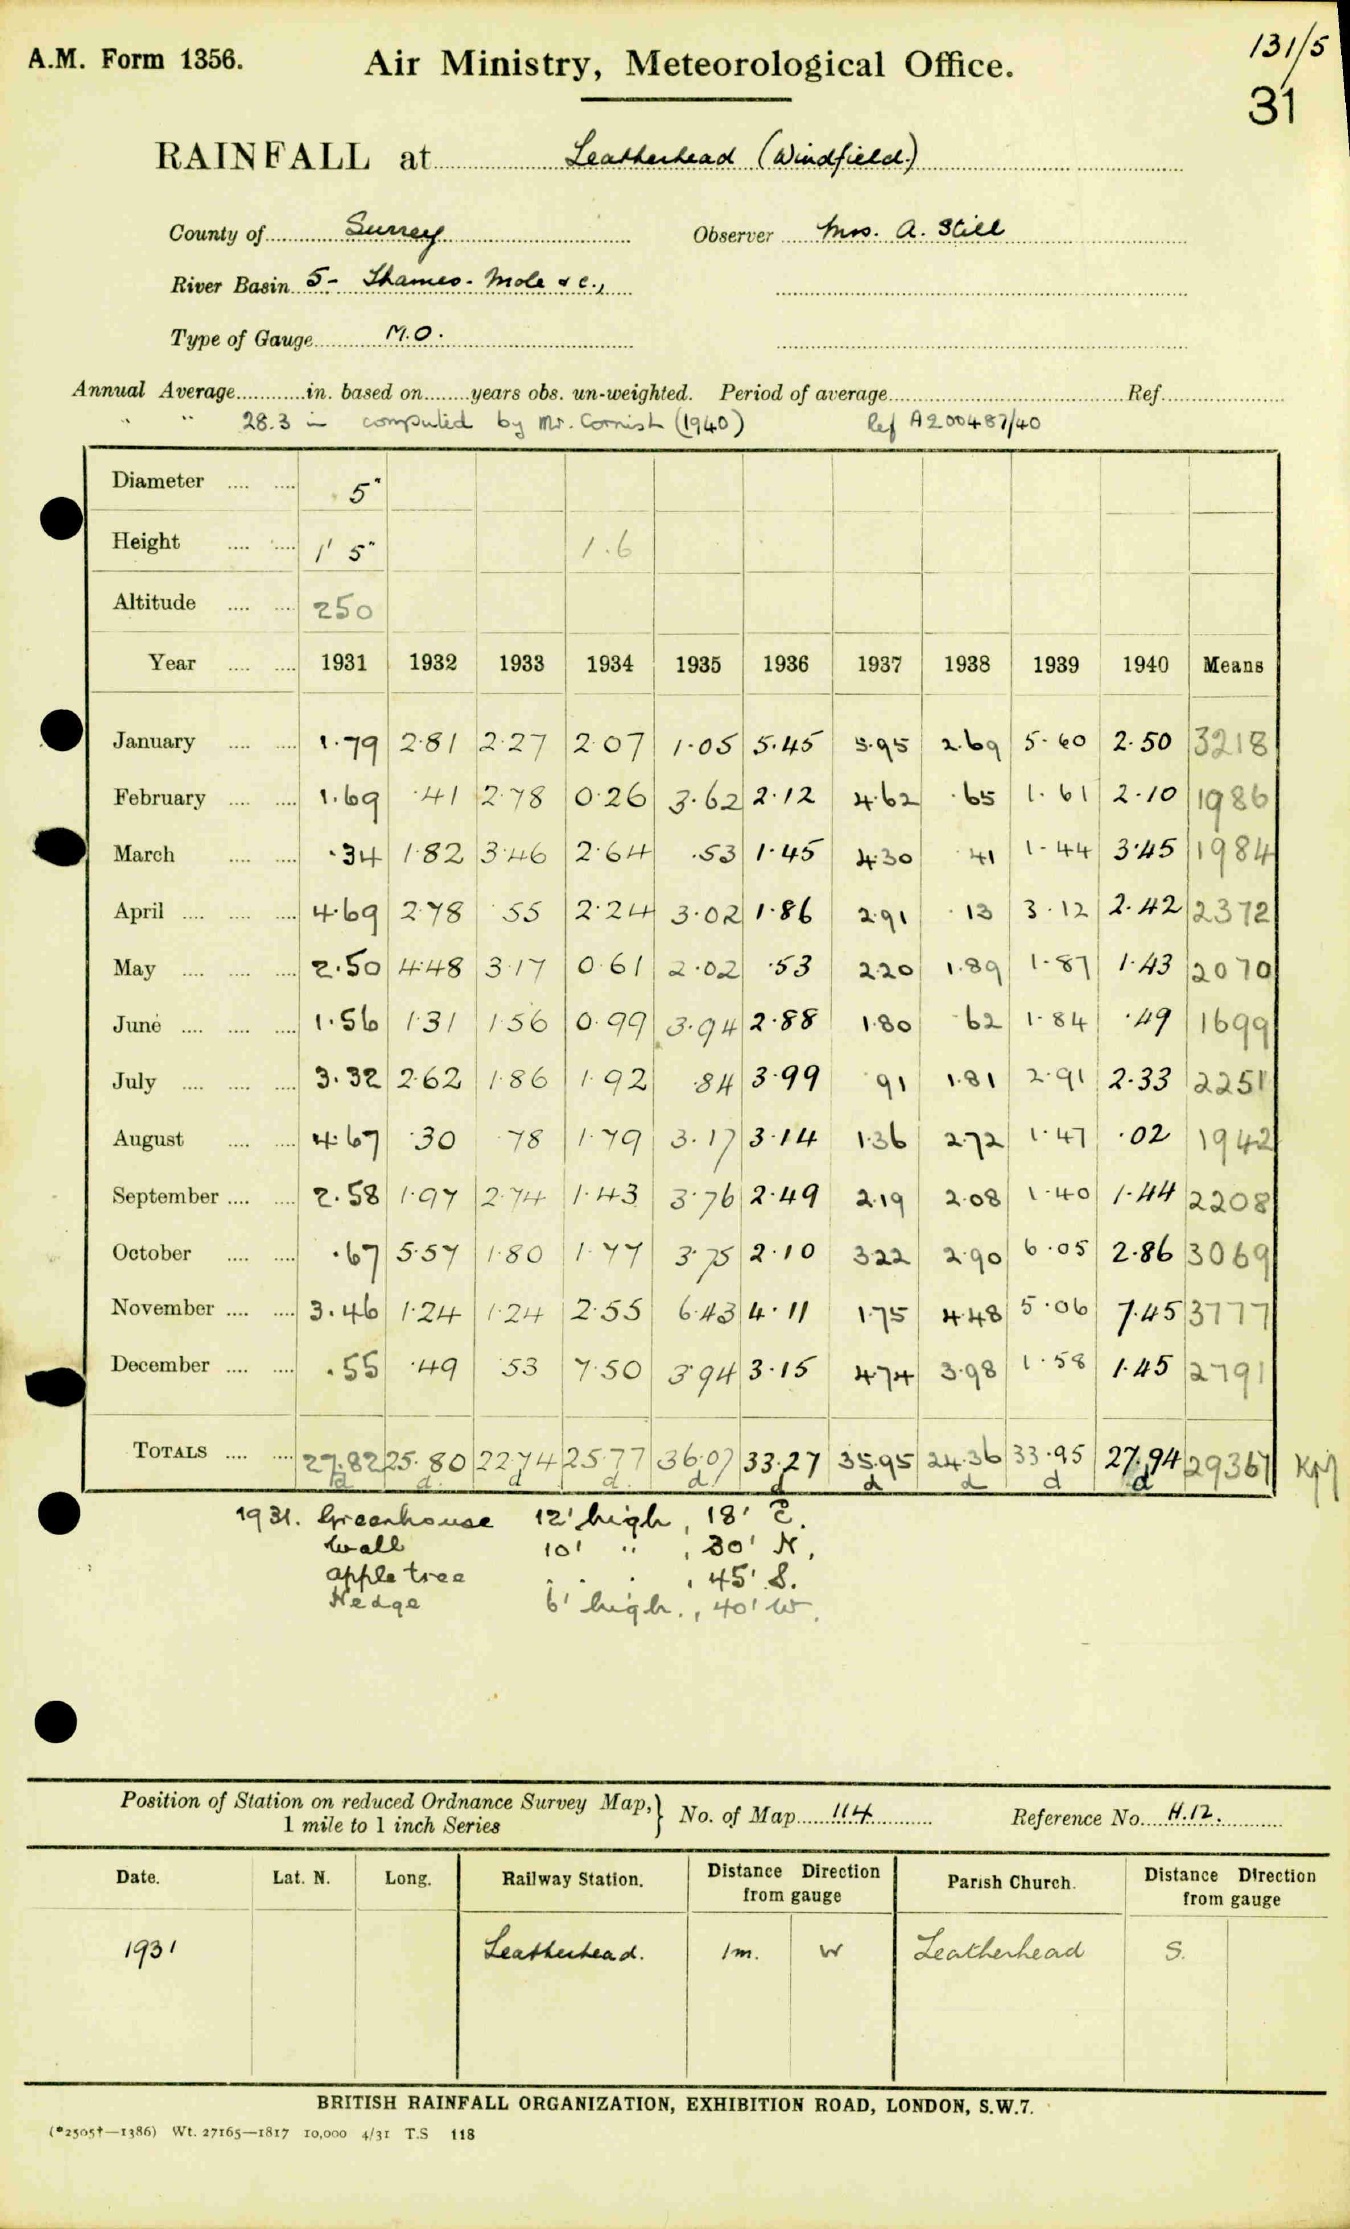 131/5
A.M. Form 1356. Air Ministry, Meteorological Office.
31
RAINFALL at Leatherhead (Windfield.)
County of Surrey Observer Mrs. A. Still
River Basin 5- Thames- Mole & c.,
Type of Gauge M.O.
Annual Average in. based on years obs. un-weighted. Period of average Ref.
" " 28.3 in computed by Mr. Cornish (1940) Ref A200487/40
Diameter 5"
Height 1' 5" 1.6
Altitude 250
Year 1931 1932 1933 1934 1935 1936 1937 1938 1939 1940 Means
January 1.79 2.81 2.27 2.07 1.05 5.45 5.95 2.69 5.60 2.50 3218
February 1.69 .41 2.78 0.26 3.62 2.12 4.62 .65 1.61 2.10 1986
March .34 1.82 3.46 2.64 .53 1.45 4.30 .41 1.44 3.45 1984
April 4.69 2.78 .55 2.24 3.02 1.86 2.91 .13 3.12 2.42 2372
May 2.50 4.48 3.17 0.61 2.02 .53 2.20 1.89 1.87 1.43 2070
June 1.56 1.31 1.56 0.99 3.94 2.88 1.80 .62 1.84 .49 1699
July 3.32 2.62 1.86 1.92 .84 3.99 .91 1.81 2.91 2.33 2251
August 4.67 .30 .78 1.79 3.17 3.14 1.36 2.72 1.47 .02 1942
September 2.58 1.97 2.74 1.43 3.76 2.49 2.19 2.08 1.40 1.44 2208
October .67 5.57 1.80 1.77 3.75 2.10 3.22 2.90 6.05 2.86 3069
November 3.46 1.24 1.24 2.55 6.43 4.11 1.75 4.48 5.06 7.45 3777
December .55 .49 .53 7.50 3.94 3.15 4.74 3.98 1.58 1.45 2791
TOTALS 27.82 25.80 22.74 25.77 36.07 33.27 35.95 24.36 33.95 27.94 29367 KM
d d d d d d d d d d
1931. Greenhouse 12' high, 18' E.
Wall 10' " , 30' N,
apple tree . . . , 45' S.
Hedge 6' high., 40' W.
Position of Station on reduced Ordnance Survey Map, 1 mile to 1 inch Series } No. of Map 114 Reference No. H.12.
Date. Lat. N. Long. Railway Station. Distance Direction from gauge Parish Church. Distance Direction from gauge
1931 Leatherhead. 1m. W Leatherhead S.
BRITISH RAINFALL ORGANIZATION, EXHIBITION ROAD, LONDON, S.W.7.
(*2505†—1386) Wt. 27165—1817 10,000 4/31 T.S 118